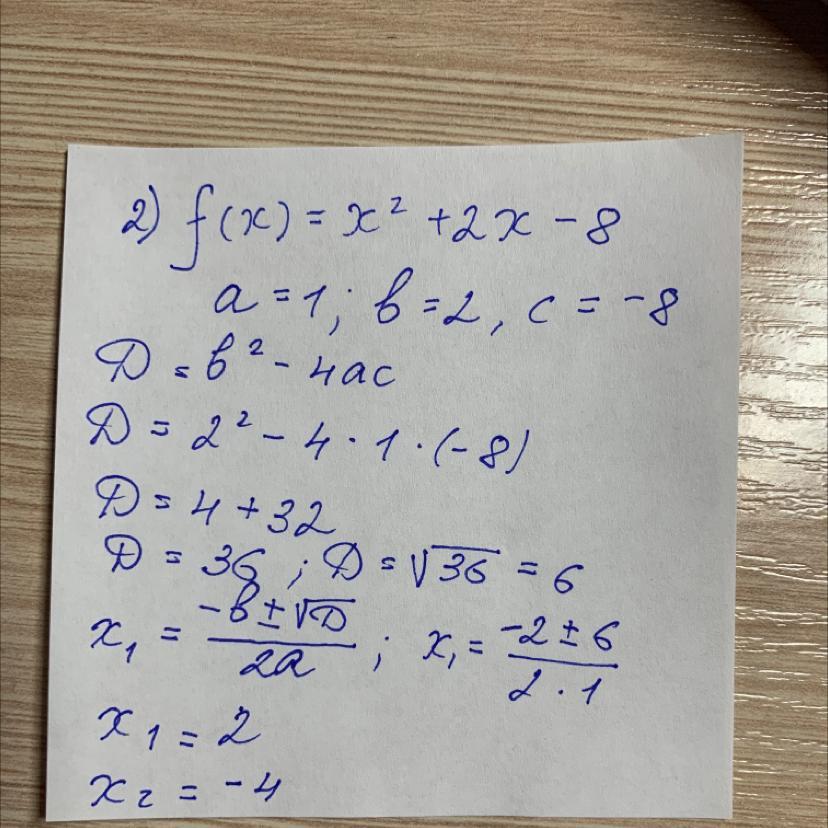 2) f(x) = x² + 2x - 8
a = 1; b = 2, c = -8
D = b² - 4ac
D = 2² - 4 · 1 · (-8)
D = 4 + 32
D = 36 ; D = √36 = 6
x₁ = (-b ± √D) / 2a ; x₁ = (-2 ± 6) / 2 · 1
x₁ = 2
x₂ = -4